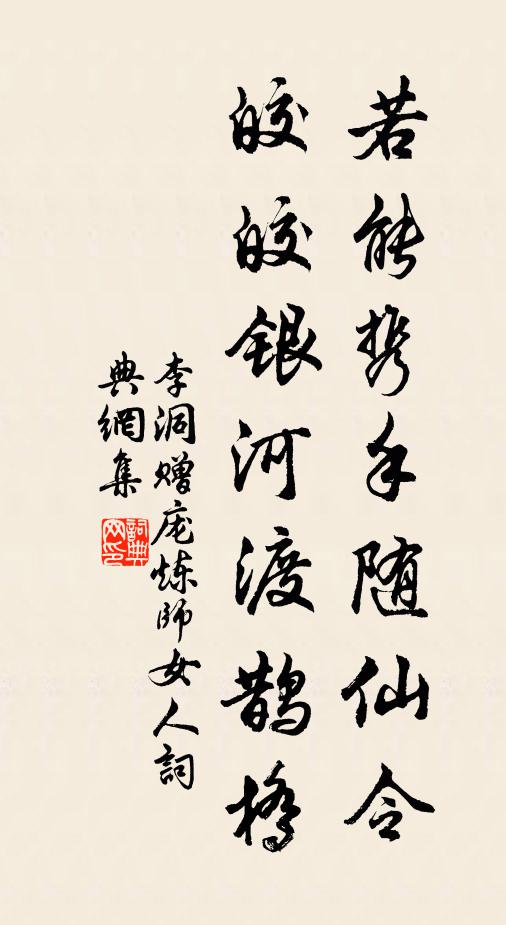 若能携手随仙令
皎皎银河渡鹊桥
李洞赠庞炼師女人詞
典網集
詞典网印